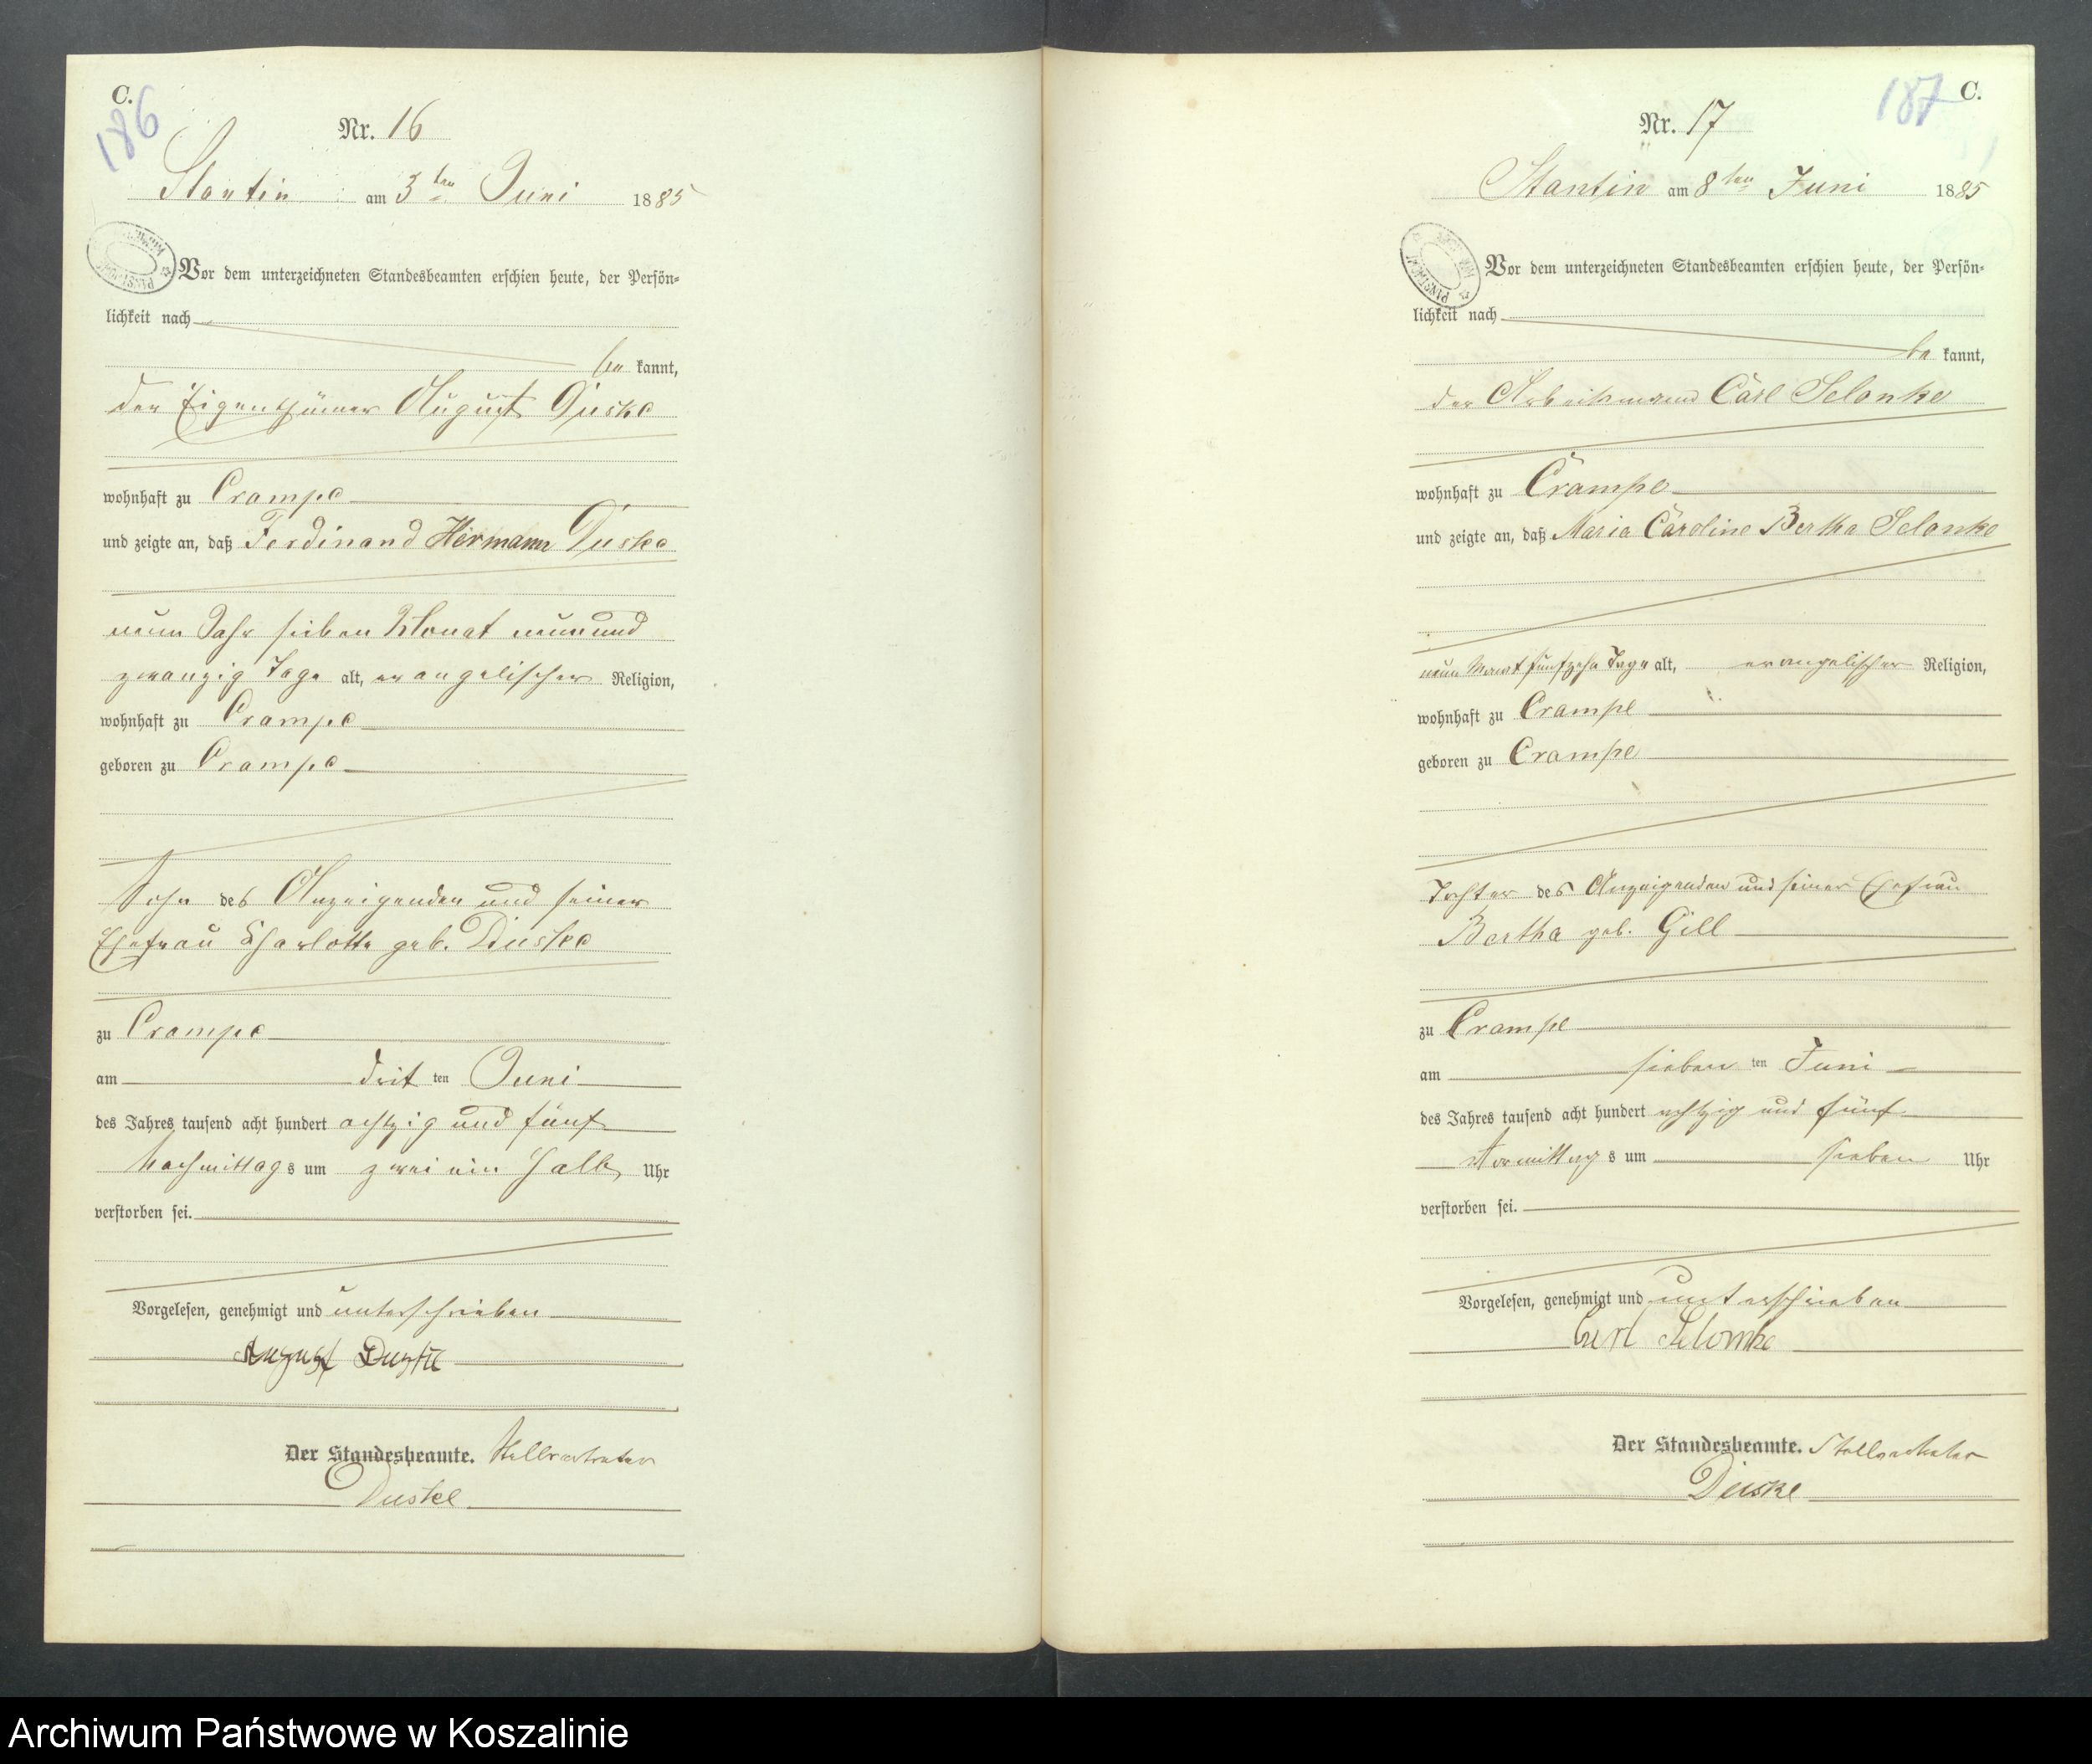 C.
186
Nr. 16
Stantin am 3ten Juni 1885
Vor dem unterzeichneten Standesbeamten erschien heute, der Persön-
lichkeit nach
be kannt,
der Eigenthümer August Duske
wohnhaft zu Crampe
und zeigte an, daß Ferdinand Hermann Duske
neun Jahr sieben Monat neunund
zwanzig Tage alt, evangelischer Religion,
wohnhaft zu Crampe
geboren zu Crampe
Sohn des Anzeigenden und seiner
Ehefrau Charlotte geb. Duske
zu Crampe
am drit ten Juni
des Jahres tausend acht hundert achtzig und fünf
Nachmittags um zwei ein halb Uhr
verstorben sei.
Vorgelesen, genehmigt und unterschrieben
August Duske
Der Standesbeamte. Stellvertreter
Duske
187 C.
Nr. 17
Stantin am 8ten Juni 1885
Vor dem unterzeichneten Standesbeamten erschien heute, der Persön-
lichkeit nach
be kannt,
der Arbeitsmann Carl Selonke
wohnhaft zu Crampe
und zeigte an, daß Maria Caroline Bertha Selonke
neun Monat fünfzehn Tage alt, evangelischer Religion,
wohnhaft zu Crampe
geboren zu Crampe
Tochter des Anzeigenden und seiner Ehefrau
Bertha geb. Gill
zu Crampe
am sieben ten Juni
des Jahres tausend acht hundert achtzig und fünf
Vormittags um sieben Uhr
verstorben sei.
Vorgelesen, genehmigt und unterschrieben
Carl Selonke
Der Standesbeamte. Stellvertreter
Duske
Archiwum Państwowe w Koszalinie